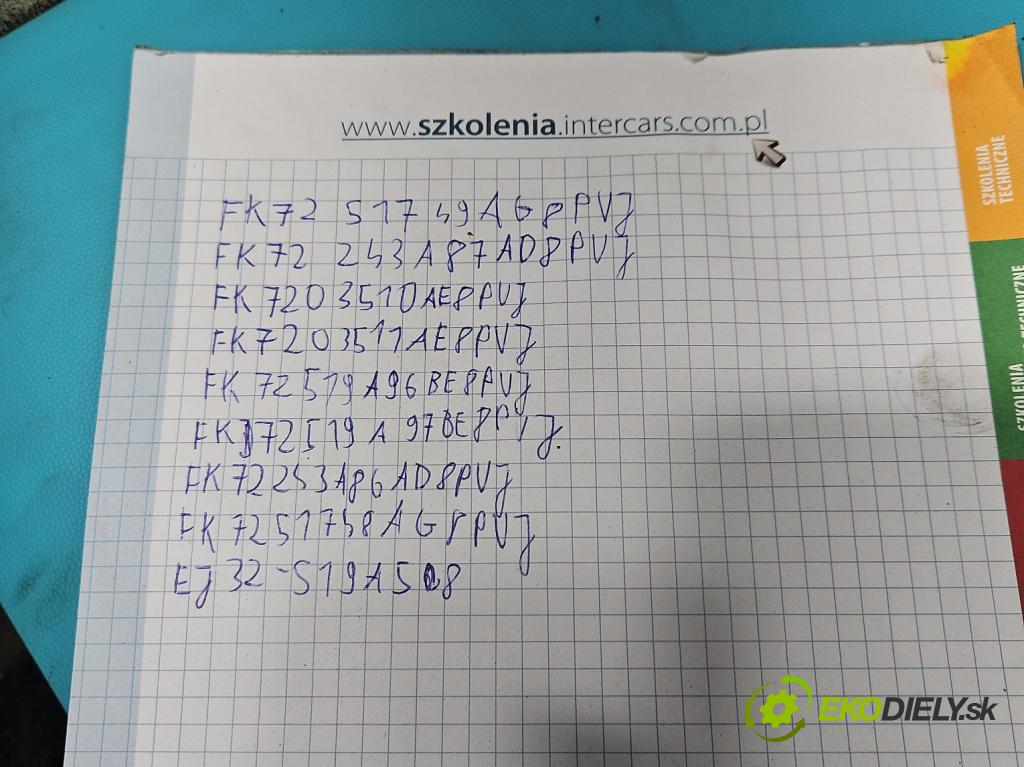 www.szkolenia.intercars.com.pl
SZKOLENIA
TECHNICZNE
FK72 51749AG8PVJ
FK72 243A87AD8PVJ
FK7203510AE8PVJ
FK7203511AE8PVJ
FK72519A96BE8PVJ
FK72519A97BE8PVJ.
FK72243A86AD8PVJ
FK7251748AG8PVJ
EJ32-519A508
SZKOLENIA
TECHNICZNE
EKODIELY.sk